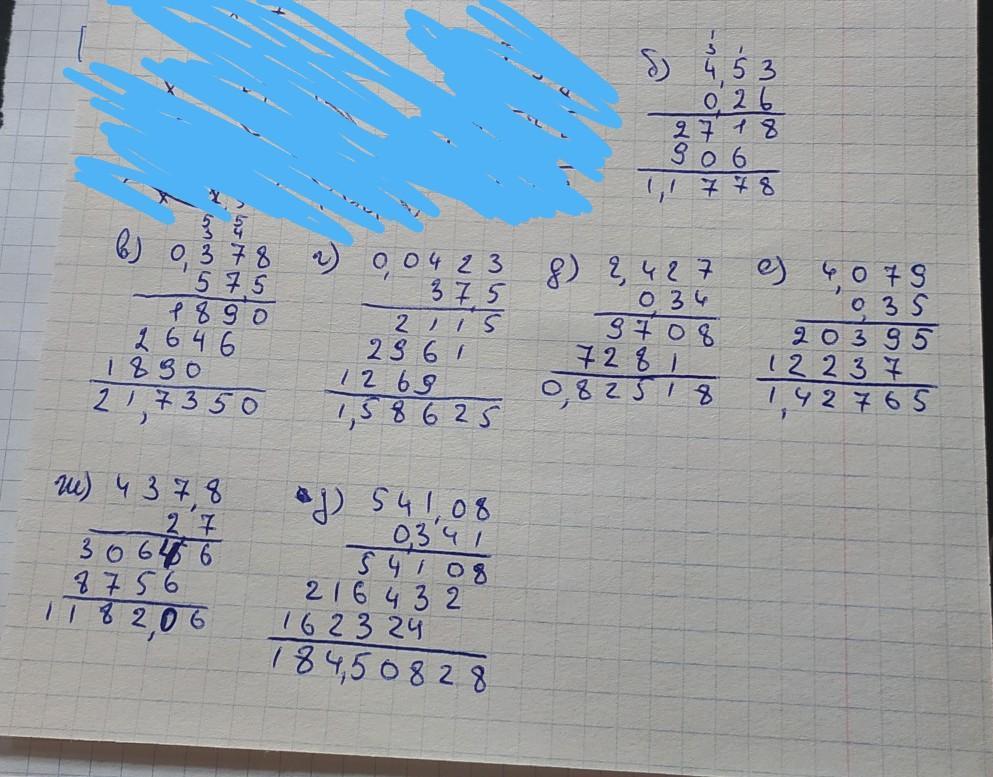 1
3 1
б) 4,53
0,26
2718
906
1,1778
5 5
3 4
в) 0,378
57,5
1890
2646
1890
21,7350
г) 0,0423
37,5
2115
2961
1269
1,58625
д) 2,427
0,34
9708
7281
0,82518
е) 4,079
0,35
20395
12237
1,42765
ж) 437,8
2,7
30646
8756
1182,06
з) 541,08
0,341
54108
216432
162324
184,50828